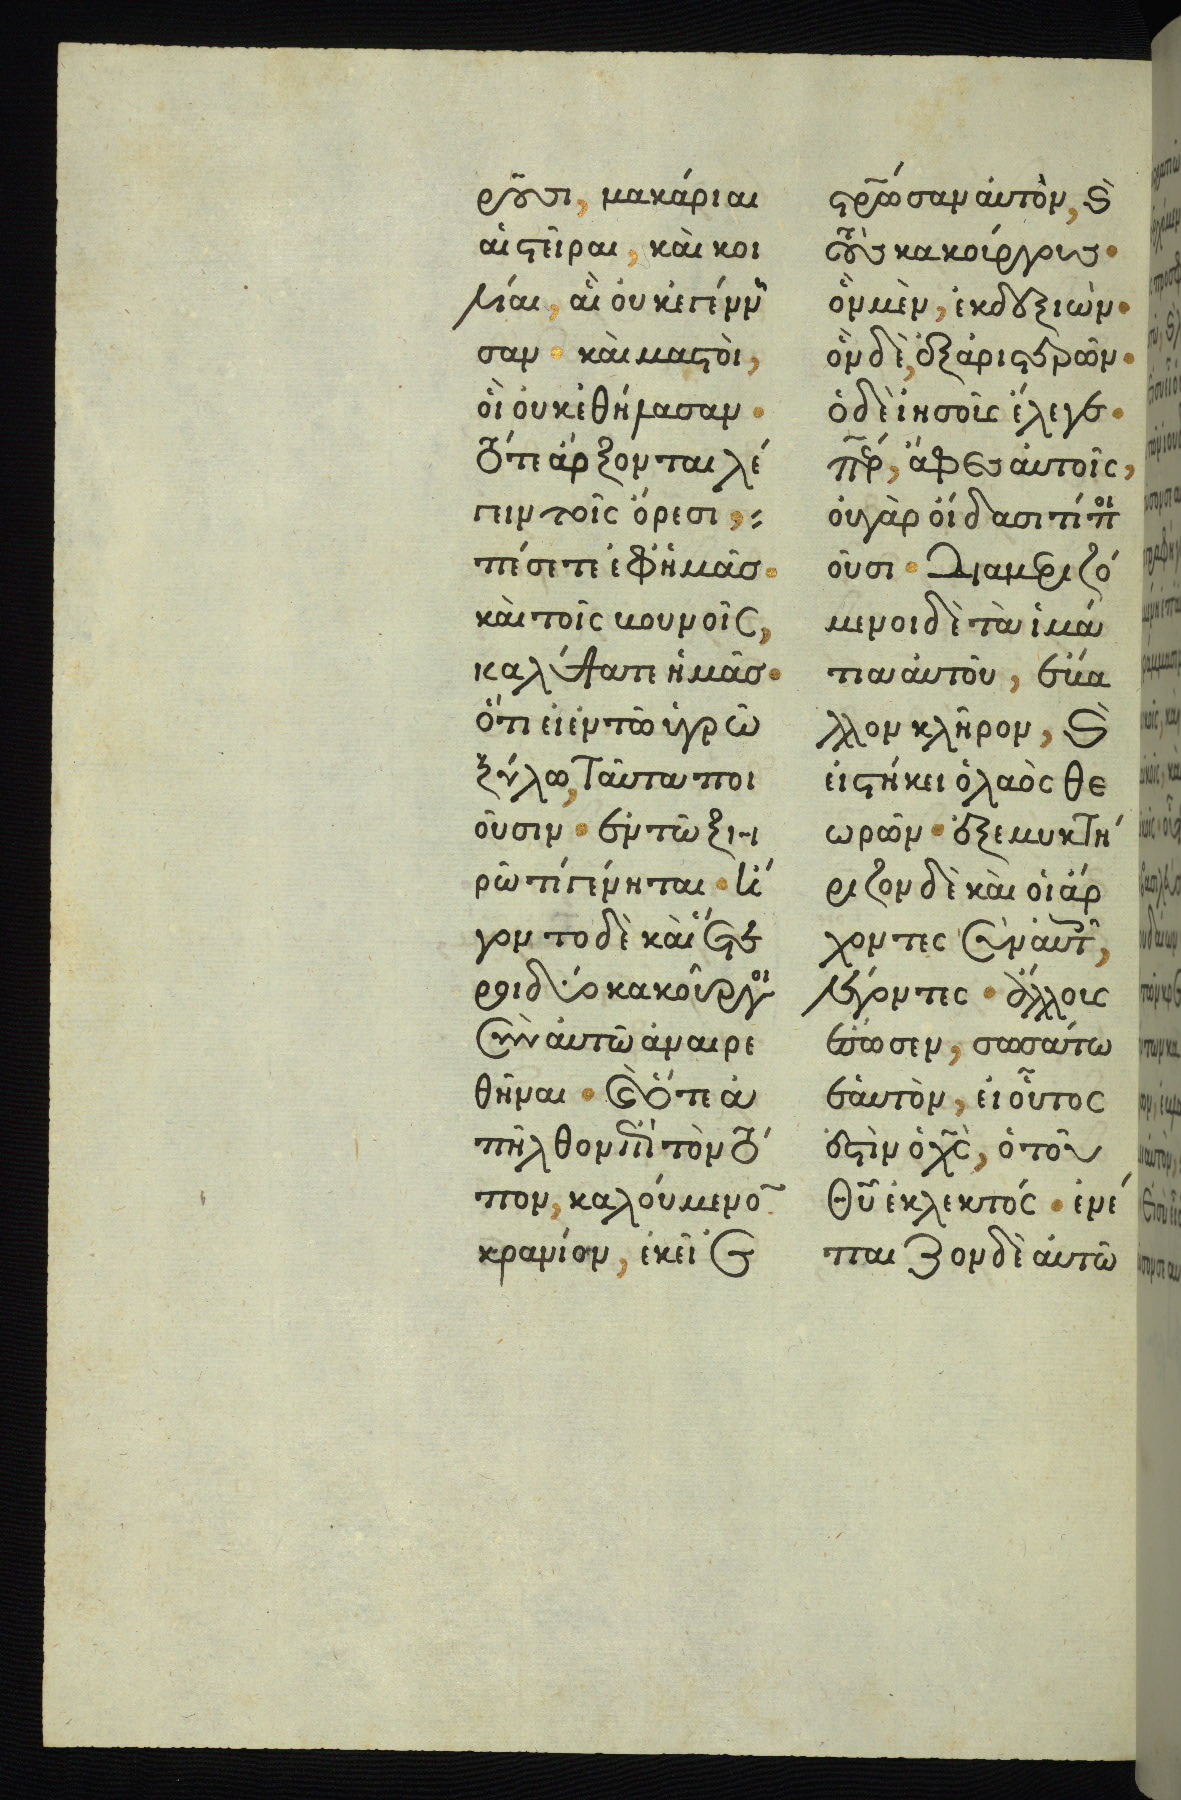 ροῦσι, μακάριαι
αἱ στεῖραι, καὶ κοι
λίαι, αἳ οὐκ ἐγέννη
σαν · καὶ μαστοὶ,
οἳ οὐκ ἐθήλασαν ·
τότε ἄρξονται λέ
γειν τοῖς ὄρεσι,
πέσετε ἐφ' ἡμᾶς ·
καὶ τοῖς βουνοῖς,
καλύψατε ἡμᾶς ·
ὅτι εἰ ἐν τῶ ὑγρῶ
ξύλω, ταῦτα ποι
οῦσιν · ἐν τῶ ξη
ρῶ τί γένηται · ἤ
γοντο δὲ καὶ ἕτε
ροι δύο κακοῦργοι
σὺν αὐτῶ ἀναιρε
θῆναι · καὶ ὅτε ἀ
πῆλθον ἐπὶ τὸν τό
πον, καλούμενον
κρανίον, ἐκεῖ ἐ
σταύρωσαν αὐτὸν, καὶ
τοὺς κακούργους ·
ὃν μὲν, ἐκ δεξιῶν ·
ὃν δὲ, ἐξ ἀριστερῶν ·
ὁ δὲ ἰησοῦς ἔλεγε ·
περ, ἄφες αὐτοῖς,
οὐ γὰρ οἴδασι τί ποι
οῦσι · Διαμεριζό
μενοι δὲ τὰ ἱμά
τια αὐτοῦ, ἔβα
λλον κλῆρον, καὶ
εἱστήκει ὁ λαὸς θε
ωρῶν · ἐξεμυκτή
ριζον δὲ καὶ οἱ ἄρ
χοντες σὺν αὐτοῖς,
λέγοντες · ἄλλους
ἔσωσεν, σωσάτω
ἑαυτὸν, εἰ οὗτος
ἐστὶν ὁ χς, ὁ τοῦ
θυ ἐκλεκτός · ἐνέ
παιζον δὲ αὐτῶ